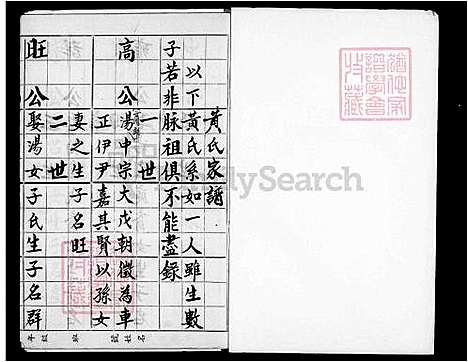 黃氏家譜
以下黃氏系如一人雖生數
子若非脈祖俱不能盡錄
一世
高公
湯中宗大戊朝徵為車
正伊尹嘉其賢以孫女
妻之生子名旺
二世
旺公
娶湯女子氏生子名群
FamilySearch